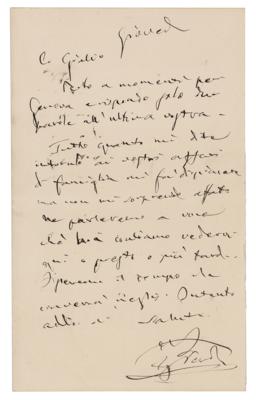 Giovedì
C. Giulio
Parto a momenti per
Genova e rispondo solo due
parole all'ultima vostra.
Tutto quanto mi dite
intorno ai vostri affari
di famiglia mi fa dispiacere
ma non mi sorprende affatto
ne parleremo a voce
chè noi contiamo vedervi
qui o presto o più tardi.
il tempo che
converrà meglio. Intanto
addio. di salute
G Verdi